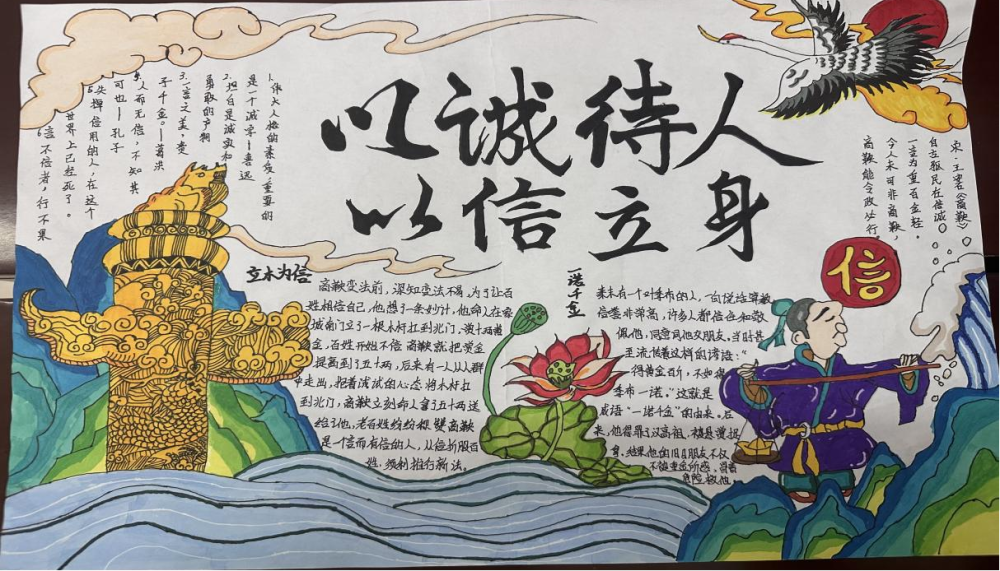 以诚待人
以信立身
1.伟大人格的素质,重要的
是一个诚字——鲁迅
2.坦白是诚实和
勇敢的产物
3.一言之美,贵
于千金。——葛洪
4.人而无信,不知其
可也——孔子
5.失掉信用的人,在这个
世界上已经死了。
6.言不信者,行不果
宋·王安石《商鞅》
自古驱民在信诚
一言为重百金轻。
今人未可非商鞅,
商鞅能令政必行。
信
立木为信
商鞅变法前,深知变法不易,为了让百
姓相信自己,他想了一条妙计,他命人在都
城南门立了一根木材扛到北门,赏十两黄
金,百姓开始不信 商鞅就把赏金
提高到了五十两,后来有一人从人群
中走出,抱着试试的心态 将木材扛
到北门,商鞅立刻命人拿了五十两送
给了他,老百姓纷纷相 商鞅
是一个言而有信的人,从位折服百
姓.须利推行新法。
一诺千金
秦末有一个叫季布的人,一向说话算数
信誉非常高,许多人都信他和敬
佩他,同意同他交朋友,当时甚
至流传着这样的谚语:“
得黄金百斤,不如得
季布一诺。”这就是
成语“一诺千金”的由来。后
来,他得罪了汉高祖,被悬赏捉
拿.结果他的旧日朋友不仅
不被重金所惑,冒着
危险救他。